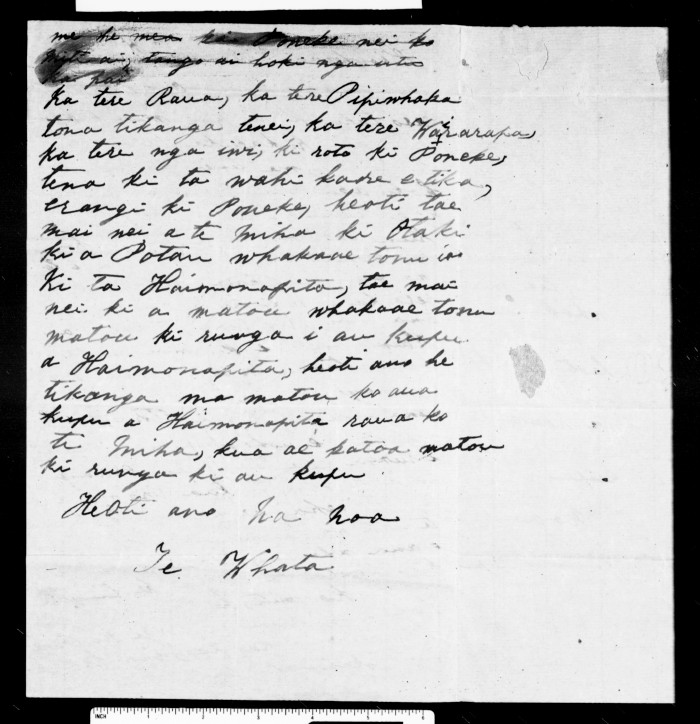 me he mea kei Poneke nei ko
ai, tango ai hoki nga utu
ka pai
Ka tere Raua, ka tere Pipiwhaka
tona tikanga tenei, ka tere Wararapa,
ka tere nga iwi, ki roto ki Poneke,
tena ki ta wahi kaore e tika,
erangi ki Poneke, heoti tae
mai nei a te Miha ki Otaki
ki a Potau whakaae tonu ia
Ki ta Haimonapita, tae mai
nei ki a matou whakaae tonu
matou ki runga i au kupu
a Haimonapita, heoti ano he
tikanga ma matou ko aua
kupu a Haimonapita raua ko
te Miha, kua ae katoa matou
ki runga ki au kupu
Heoti ano Na Noa
Te Whata
INCH 1 2 3 4